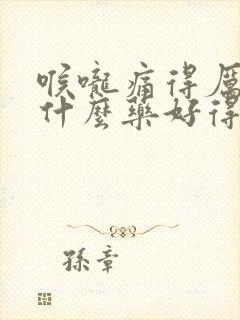 喉嚨痛得厲
什麼藥好得
孫章